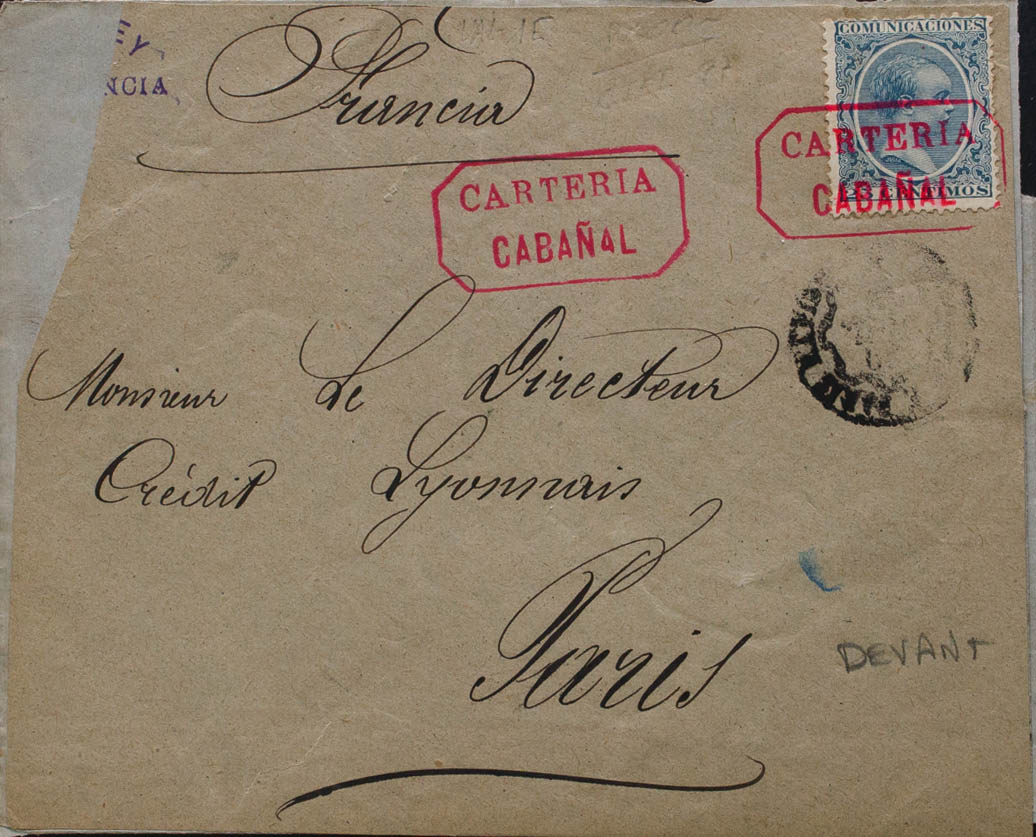 EY
NCIA
Francia
COMUNICACIONES
CENTIMOS
CARTERIA
CABAÑAL
CARTERIA
CABAÑAL
Monsieur Le Directeur
Crédit Lyonnais
Paris
DEVANT